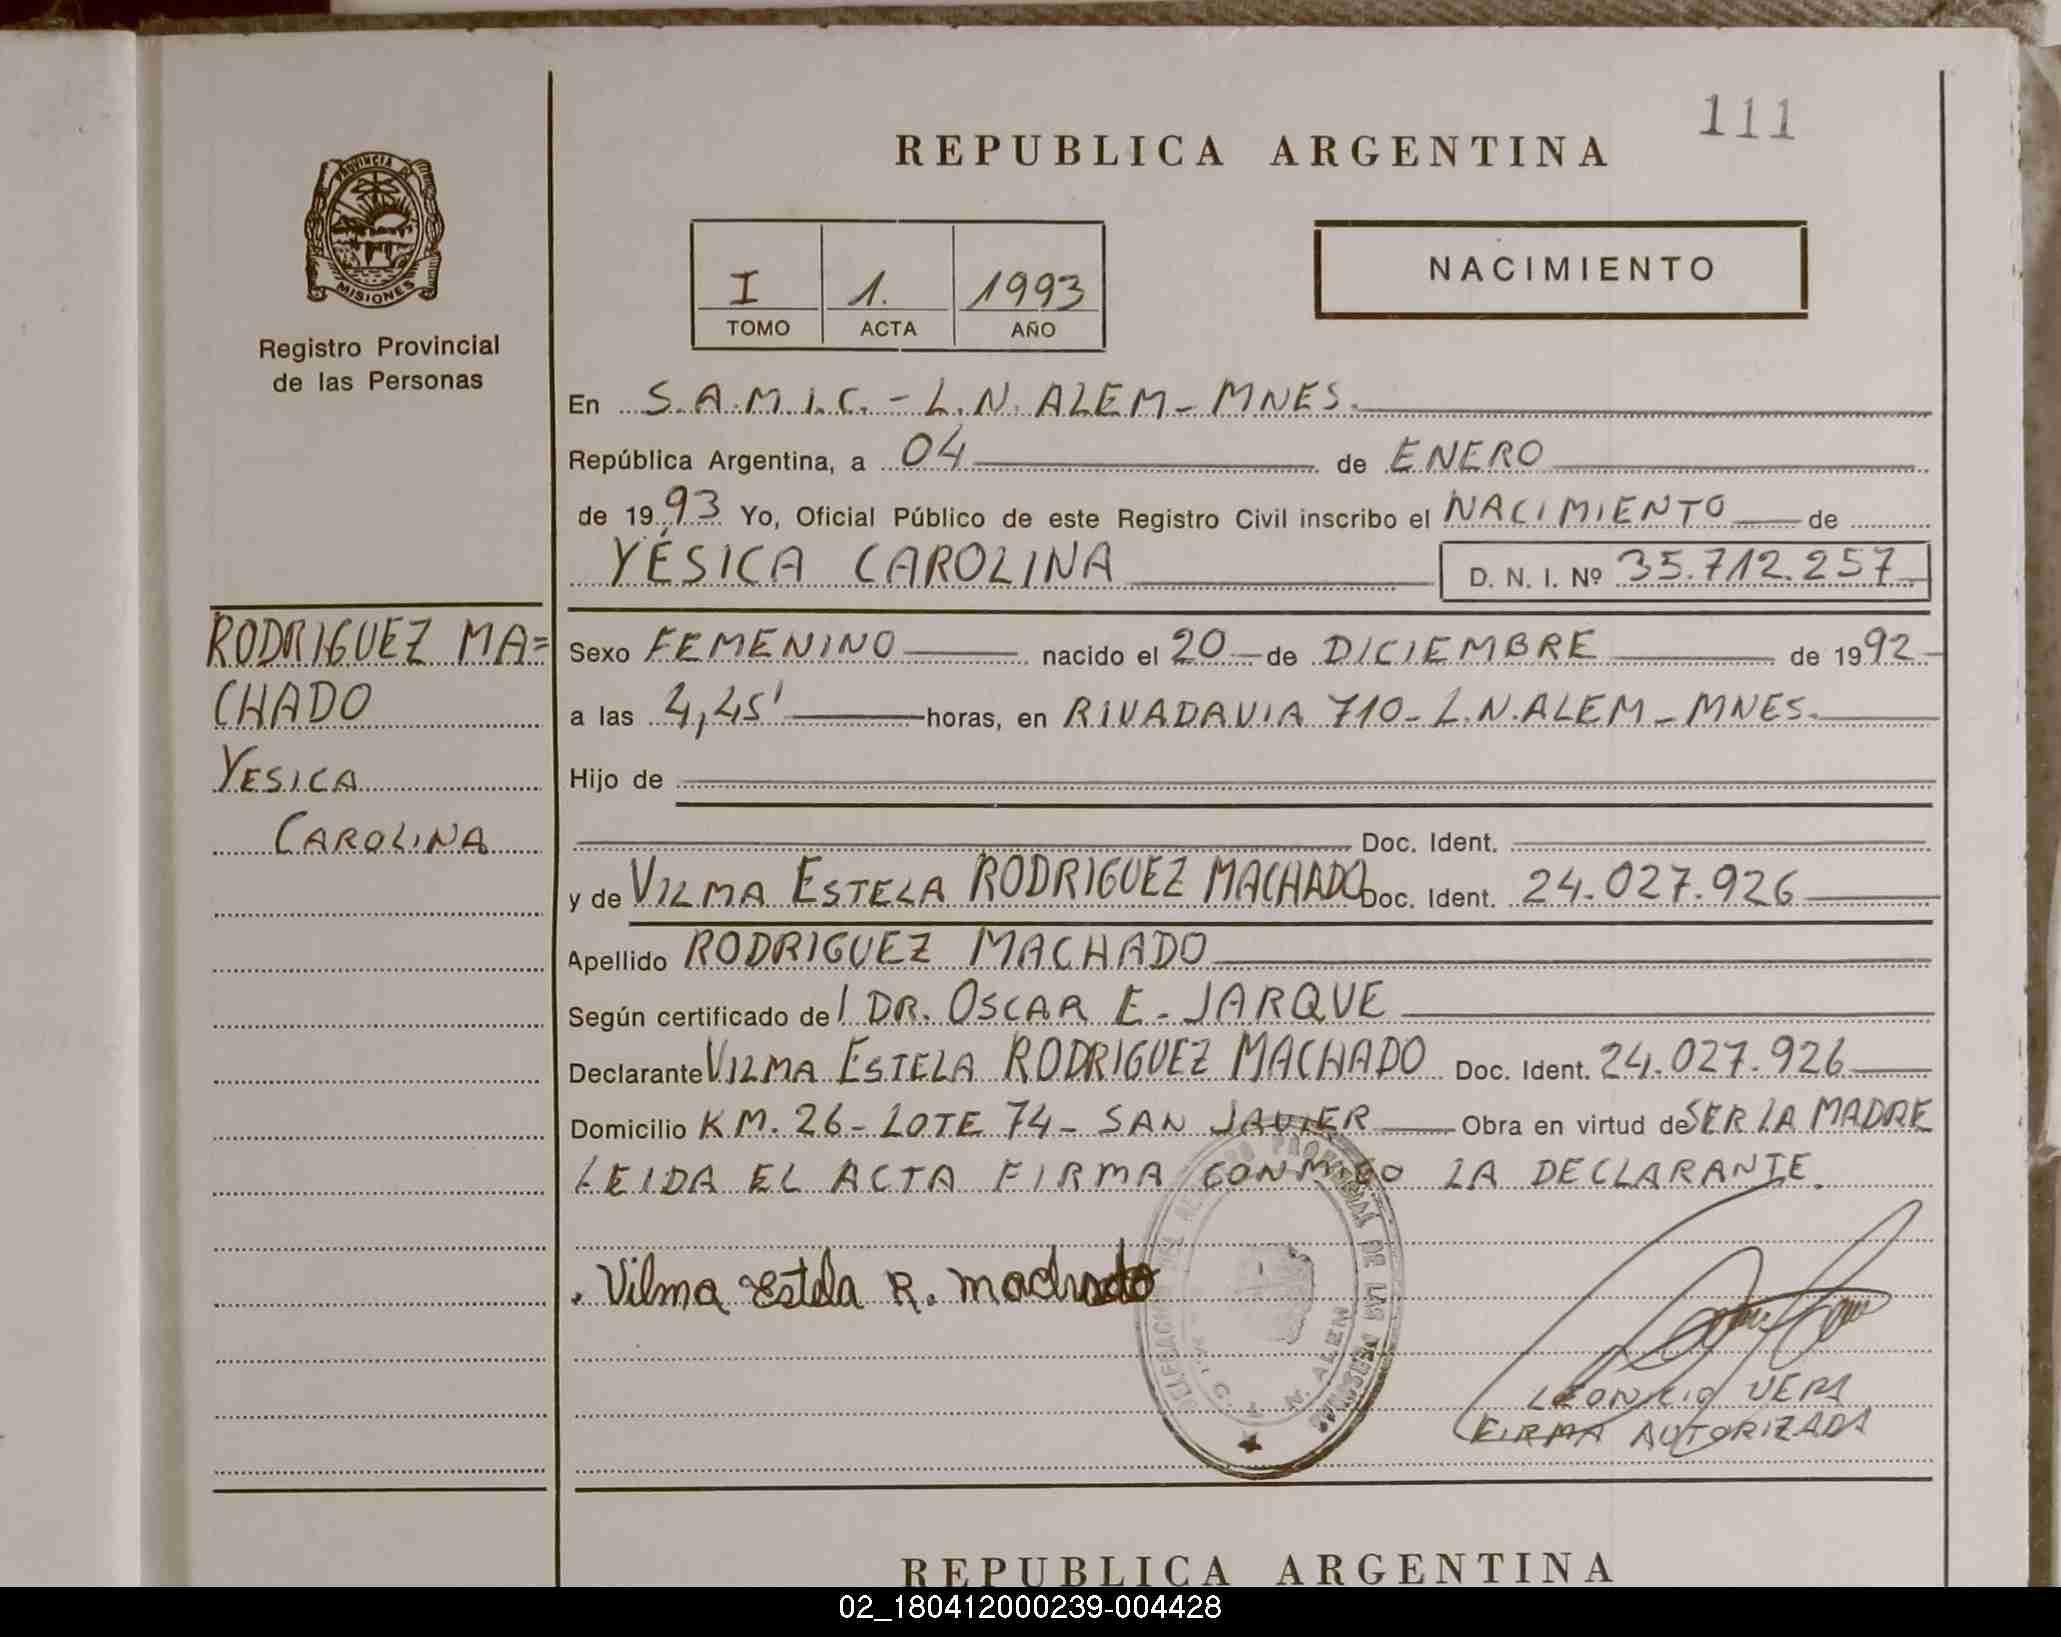 111
REPUBLICA ARGENTINA
PROVINCIA DE
MISIONES
Registro Provincial
de las Personas
I 1. 1993
TOMO ACTA AÑO
NACIMIENTO
En S.A.M.I.C. - L.N. ALEM - MNES.
República Argentina, a 04 de ENERO
de 1993 Yo, Oficial Público de este Registro Civil inscribo el NACIMIENTO de
YÉSICA CAROLINA D. N. I. Nº 35.712.257
RODRIGUEZ MA=
CHADO
YESICA
CAROLINA
Sexo FEMENINO nacido el 20 de DICIEMBRE de 1992
a las 4,45' horas, en RIVADAVIA 710 - L.N. ALEM - MNES.
Hijo de
Doc. Ident.
y de VILMA ESTELA RODRIGUEZ MACHADO Doc. Ident. 24.027.926
Apellido RODRIGUEZ MACHADO
Según certificado del DR. OSCAR E. JARQUE
Declarante VILMA ESTELA RODRIGUEZ MACHADO Doc. Ident. 24.027.926
Domicilio KM. 26 - LOTE 74 - SAN JAVIER Obra en virtud de SER LA MADRE
LEIDA EL ACTA FIRMA CONMIGO LA DECLARANTE.
Vilma Estela R. Machado
PROVINCIAL DE LAS PERSONAS
N. ALEM
LEONCIO VERA
FIRMA AUTORIZADA
REPUBLICA ARGENTINA
02_180412000239-004428